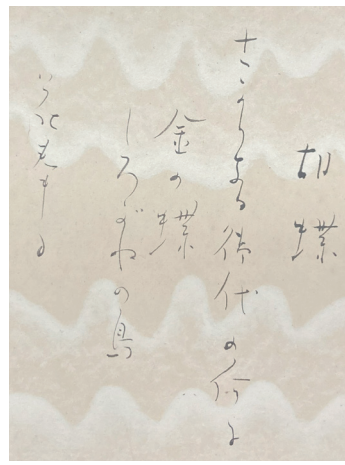 胡蝶
さかりなる御代の后に
金の蝶
しろがねの鳥
花たてまつる